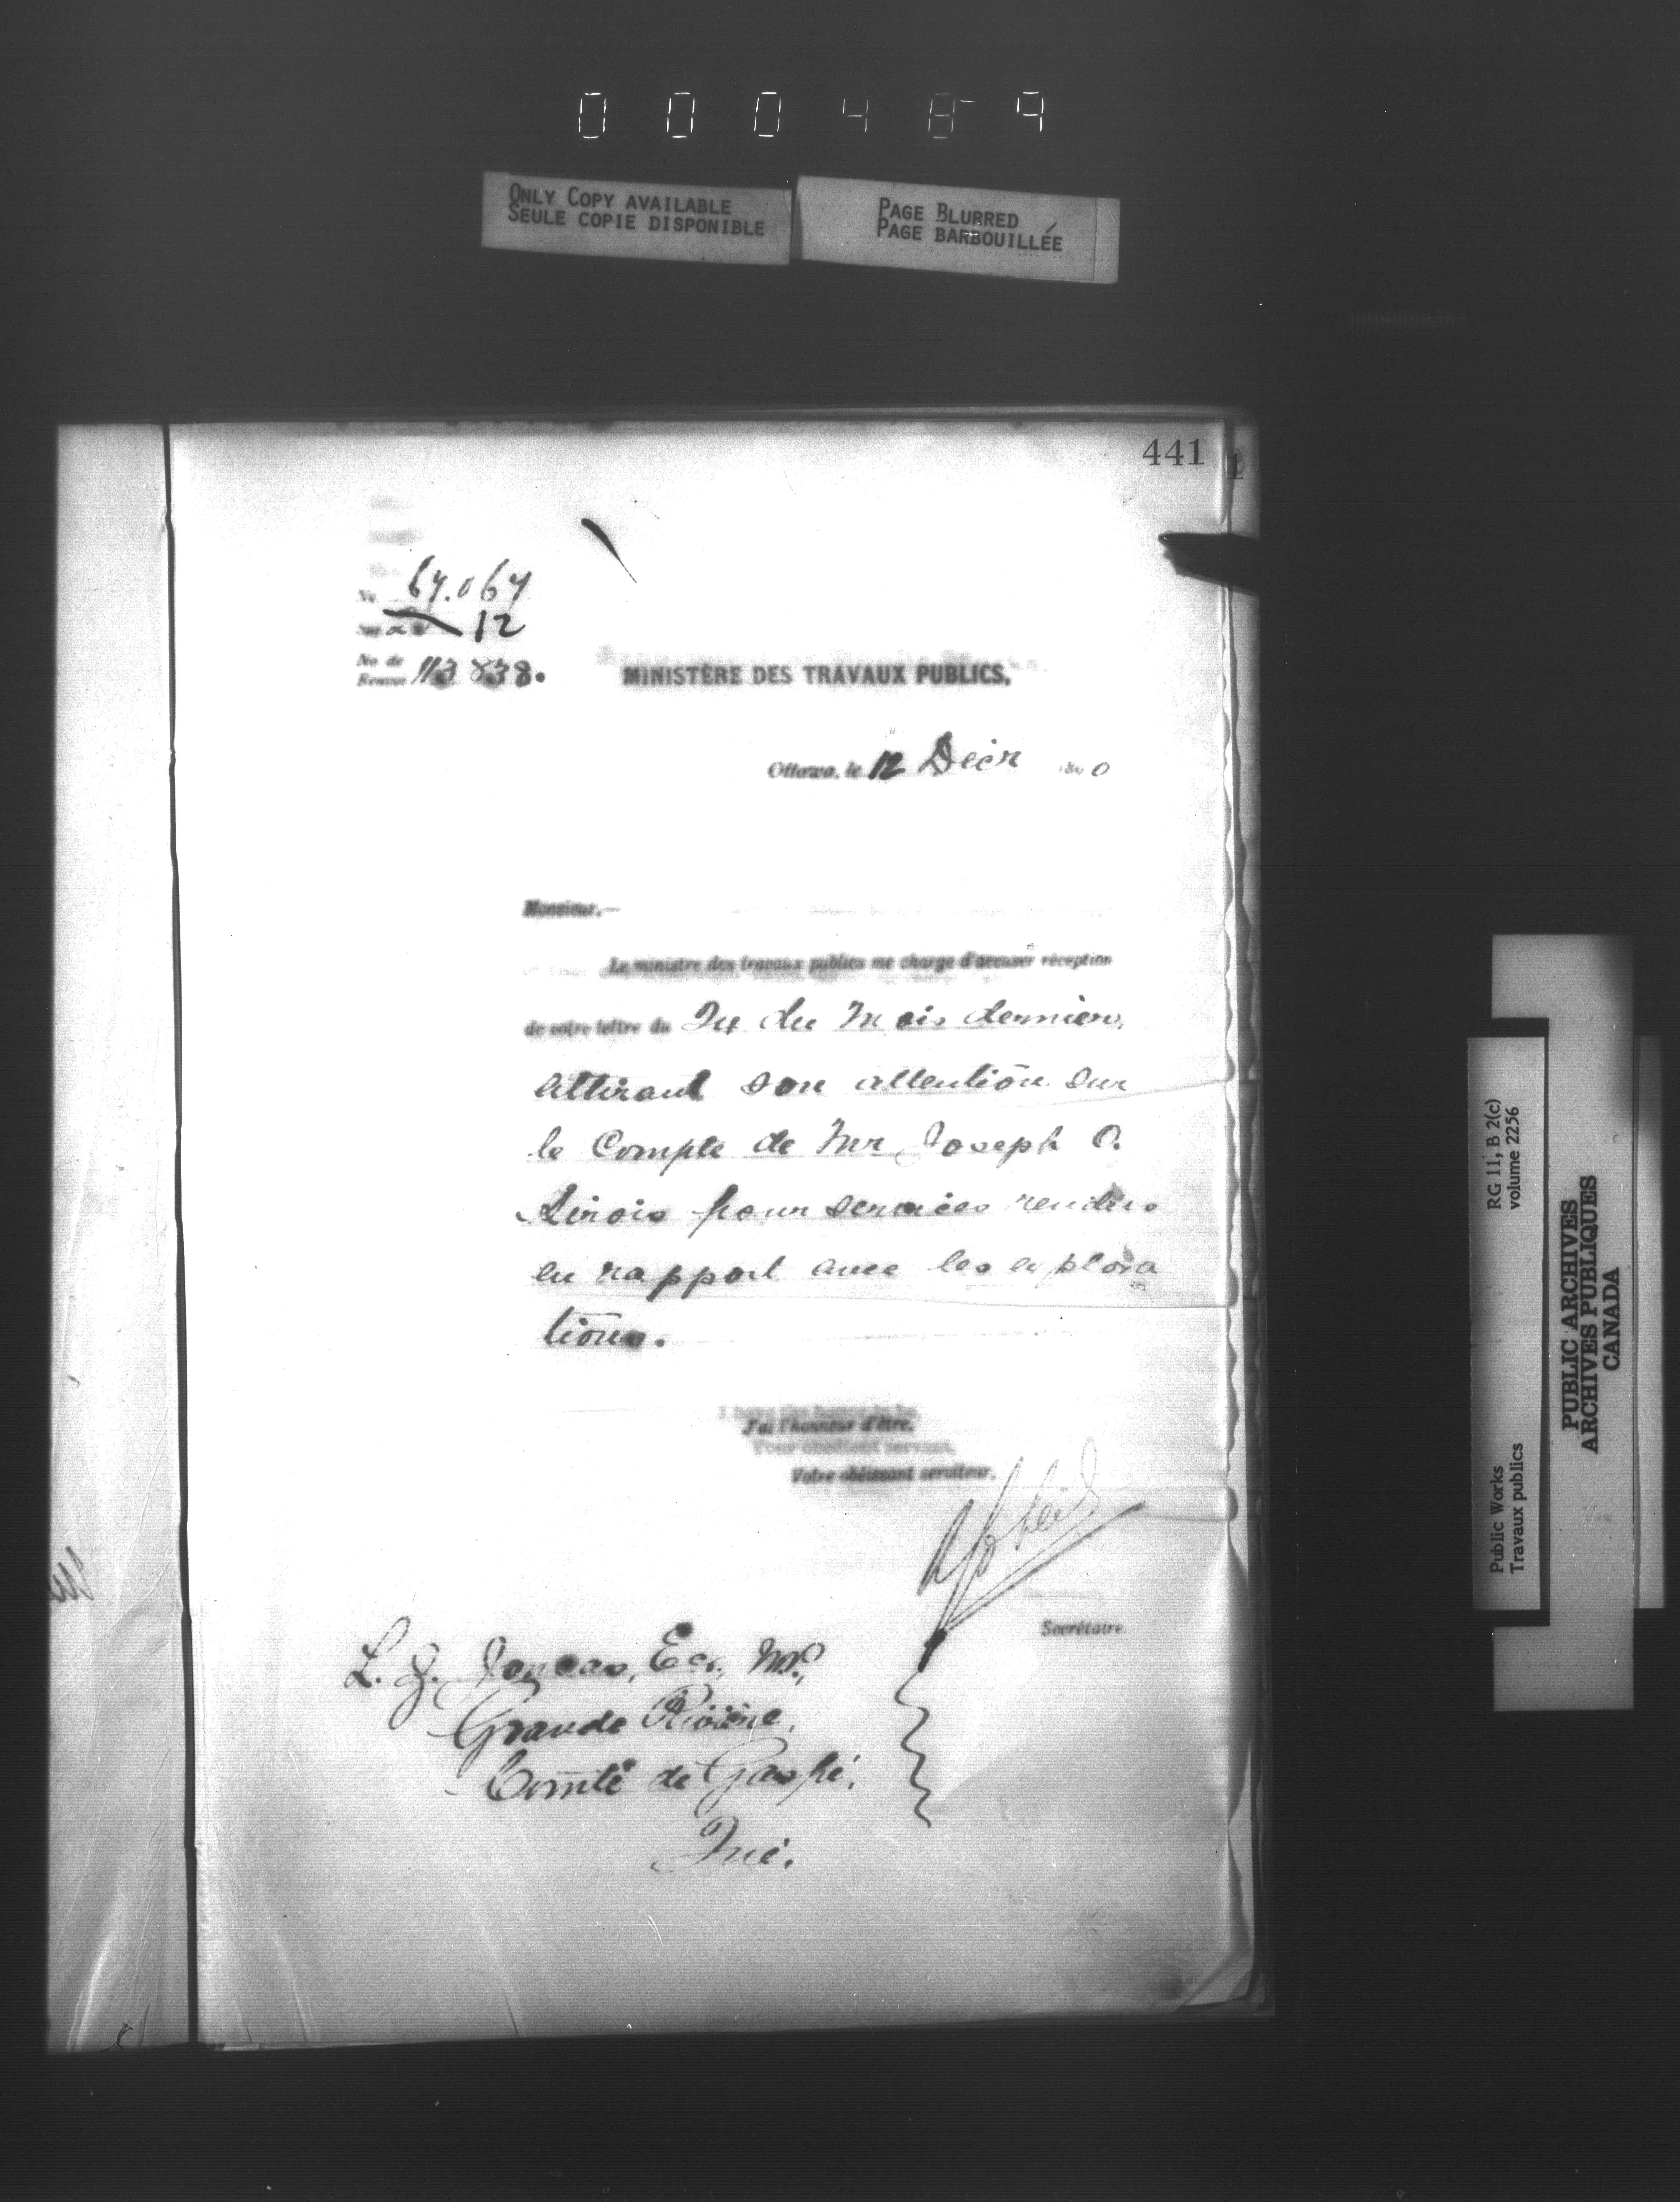 000489
ONLY COPY AVAILABLE
SEULE COPIE DISPONIBLE
PAGE BLURRED
PAGE BARBOUILLÉE
441
No 67.067
12
No de
Renvoi 113 838.
MINISTÈRE DES TRAVAUX PUBLICS,
Ottawa, le 12 Décr
Monsieur,—
Le ministre des travaux publics me charge d'accuser réception
de votre lettre du du Mois dernier,
attirant son attention sur
le Compte de Mr Joseph O.
Sirois pour services rendus
en rapport avec les explora
tions.
I have the honor to be,
J'ai l'honneur d'être,
Your obedient servant,
Votre obéissant serviteur,
Secrétaire.
L. Z. Joncas, Ecr, MP,
Grande Rivière,
Comté de Gaspé,
Qué.
RG 11, B 2(c)
volume 2256
Public Works
Travaux publics
PUBLIC ARCHIVES
ARCHIVES PUBLIQUES
CANADA